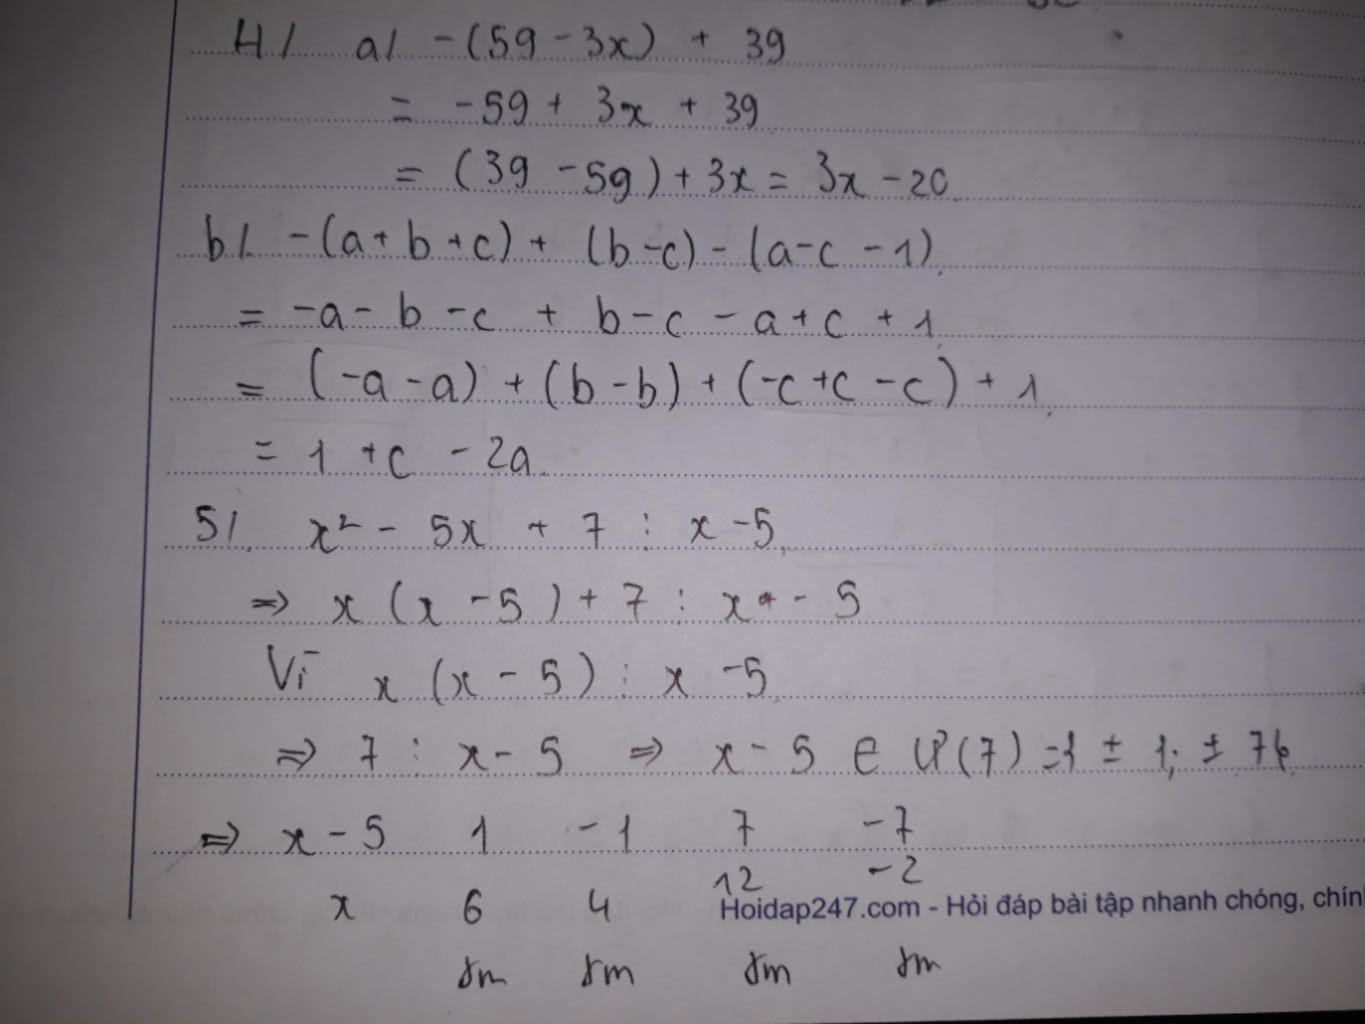 4/ a/ -(59 - 3x) + 39
= -59 + 3x + 39
= (39 - 59) + 3x = 3x - 20
b/. -(a + b + c) + (b - c) - (a - c - 1)
= -a - b - c + b - c - a + c + 1
= (-a - a) + (b - b) + (-c + c - c) + 1
= 1 + c - 2a
5/. x² - 5x + 7 ⋮ x - 5
=> x (x - 5) + 7 ⋮ x - 5
Vì x (x - 5) ⋮ x - 5
=> 7 ⋮ x - 5 => x - 5 ∈ Ư(7) = { ± 1; ± 7}
=> x - 5 1 -1 7 -7
x 6 4 12 -2
Hoidap247.com - Hỏi đáp bài tập nhanh chóng, chín
tm tm tm tm